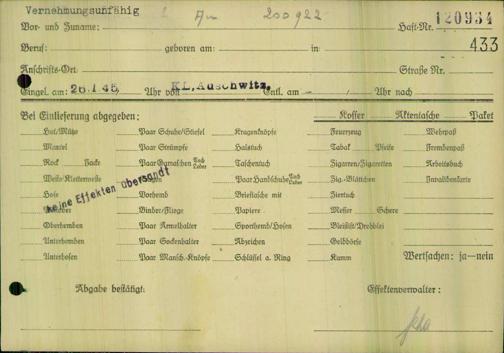 Vernehmungsunfähig 200922
Vor- und Zuname: Haft-Nr. 120934
Beruf: geboren am: in 433
Anschrifts-Ort Straße Nr.
Eingel. am: 26.1.45, Uhr von KL.Auschwitz, Entl. am - / Uhr nach
Bei Einlieferung abgegeben: Koffer Aktentasche Paket
Hut/Mütze Paar Schuhe/Stiefel Kragenknöpfe Feuerzeug Wehrpaß
Mantel Paar Strümpfe Halstuch Tabak Pfeife Fremdenpaß
Rock Jacke Paar Gamaschen Tuch Leder Taschentuch Zigarren/Zigaretten Arbeitsbuch
Weste/Kletterweste Kragen Paar Handschuhe Tuch Leder Zig.-Blättchen Invalidenkarte
Hose Vorhemd Brieftasche mit Ziertuch
keine Effekten übersandt
Pullover Binder/Fliege Papiere Messer Schere
Oberhemden Paar Ärmelhalter Sporthemd/Hosen Bleistift/Drehblei
Unterhemden Paar Sockenhalter Abzeichen Geldbörse
Unterhosen Paar Mansch.-Knöpfe Schlüssel a. Ring Kamm Wertsachen: ja—nein
Abgabe bestätigt: Effektenverwalter: